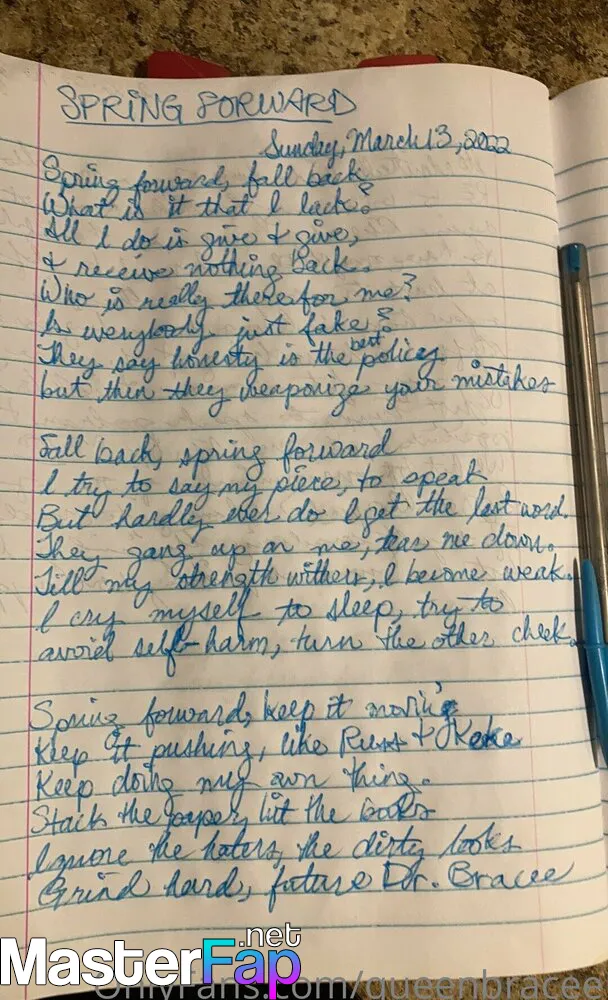 SPRING FORWARD
Sunday, March 13, 2022
Spring forward, fall back
What is it that I lack?
All I do is give & give,
& receive nothing back.
Who is really there for me?
Is everybody just fake?
They say honesty is the best policy
but then they weaponize your mistakes
Fall back, spring forward
I try to say my piece, to speak
But hardly ever do I get the last word.
They gang up on me, tear me down.
Till my strength withers, I become weak.
I cry myself to sleep, try to
avoid self-harm, turn the other cheek.
Spring forward, keep it movin's
Keep it pushing, like Russ & Keke
Keep doing my own thing.
Stack the paper, hit the books
Ignore the haters, the dirty looks
Grind hard, future Dr. Bracee
MasterFap.net
OnlyFans.com/queenbracee